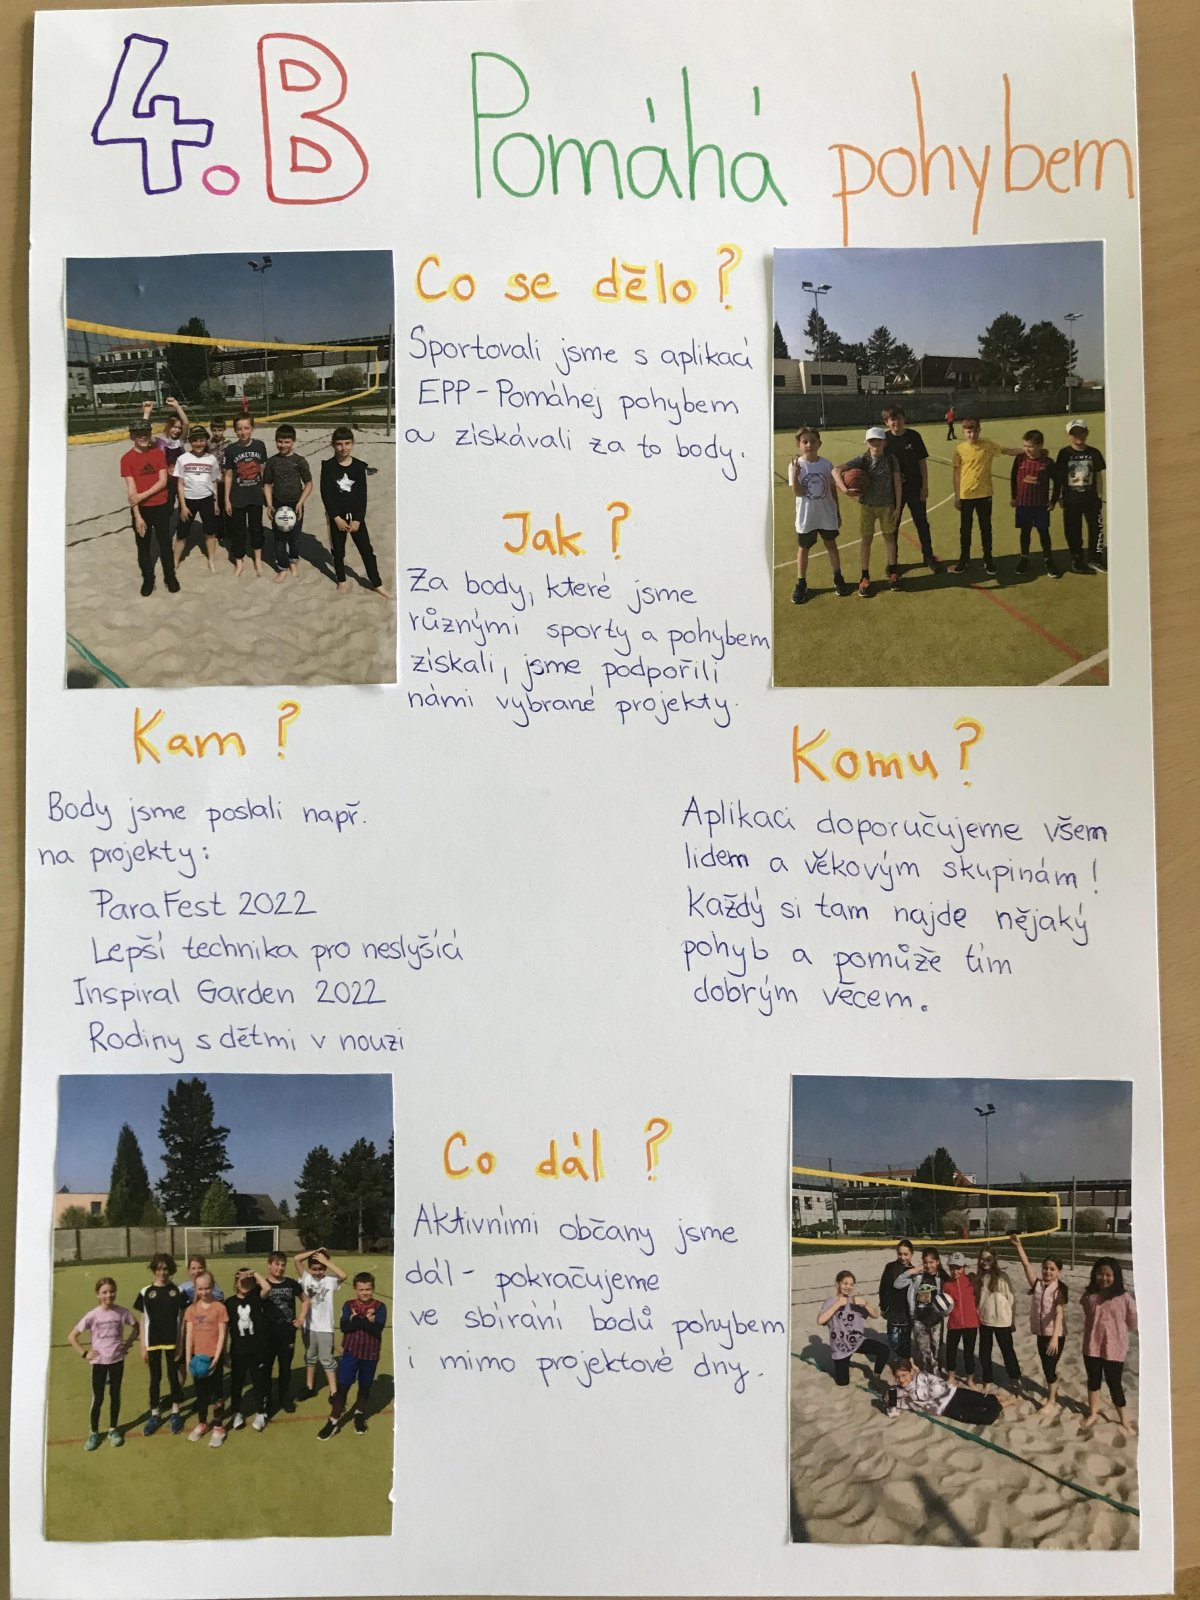 4.B Pomáhá pohybem
Co se dělo?
Sportovali jsme s aplikací
EPP-Pomáhej pohybem
a získávali za to body.
Jak?
Za body, které jsme
různými sporty a pohybem
získali, jsme podpořili
námi vybrané projekty.
Kam?
Body jsme poslali např.
na projekty:
ParaFest 2022
Lepší technika pro neslyšící
Inspiral Garden 2022
Rodiny s dětmi v nouzi
Komu?
Aplikaci doporučujeme všem
lidem a věkovým skupinám!
Každý si tam najde nějaký
pohyb a pomůže tím
dobrým věcem.
Co dál?
Aktivními občany jsme
dál - pokračujeme
ve sbírání bodů pohybem
i mimo projektové dny.
BASKETBALL